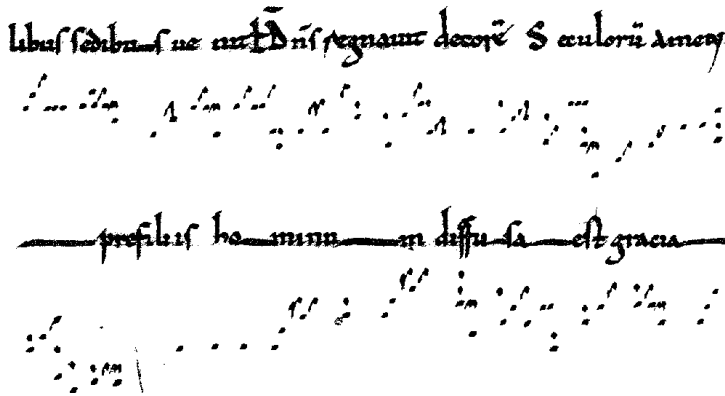 libus sedibus ue nit D n̄s regnauit decorē S eculorū amen
pre filiis ho minum in diffu sa est gracia